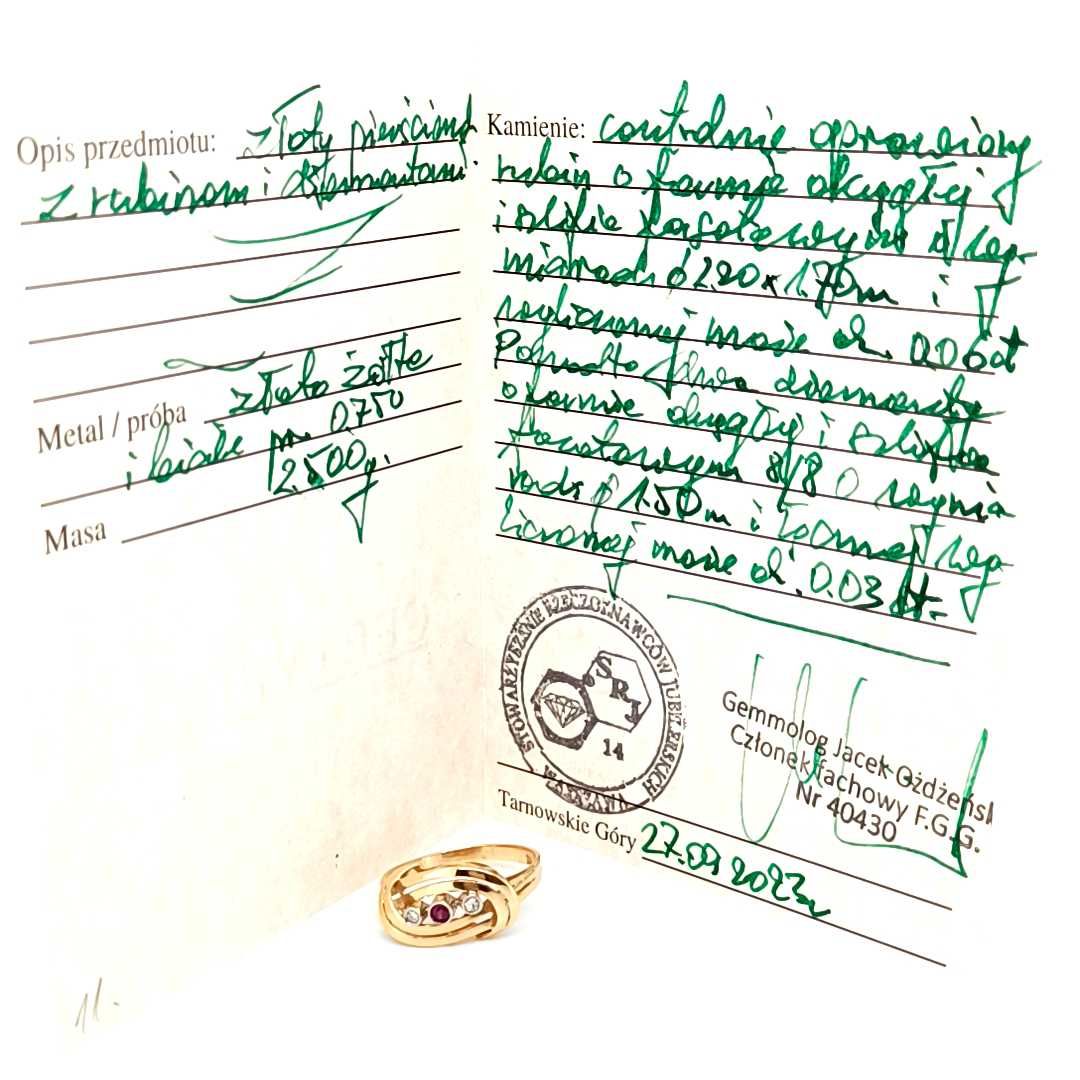 Opis przedmiotu: złoty pierścionek
z rubinem i diamentami
Metal / próba złoto żółte
i białe pr. 0.750
Masa 2.500g.
Kamienie: centralnie oprawiony
rubin o formie okrągłej
i szlifie fasetowym o wy-
miarach ϕ 2.20 x 1.70m i
wyliczonej masie ok. 0.06ct
Ponadto dwa diamenty
o formie okrągłej i szlifie
fasetowym 8/8 o wymia
rach ϕ 1.50m i łącznej wy-
liczonej masie ok. 0.03 ct.
STOWARZYSZENIE RZECZOZNAWCÓW JUBILERSKICH
SRJ
14
WARSZAWA
Gemmolog Jacek Ożdżeńsk
Członek fachowy F.G.G.
Nr 40430
Tarnowskie Góry 27.09.2023r